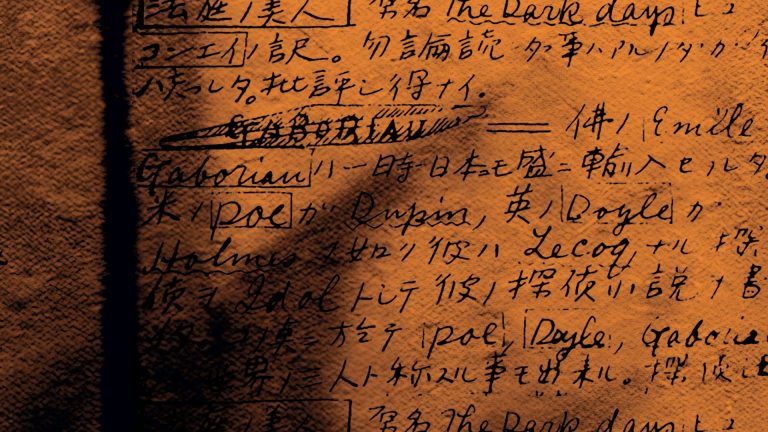 法庭ノ美人 原名 The Dark days ヒュ
コンエイノ訳。勿論讀
ハ失ッタ。批評シ得ナイ。
GABORIAU 佛ノ Emile
Gaboriauハ一時日本ニモ盛ニ輸入セルタ。
米ノ poe ガ Dupin, 英ノ Doyle ガ
Holmes ノ如ク彼ハ Lecoq ナル 探
偵ヲ Idol トシテ彼ノ探偵小説ノ書
於テ poe, Doyle, Gaboria
界ノ三人ト称スル事モ出来ル。探偵
美人 原名 The Dark days ヒュ